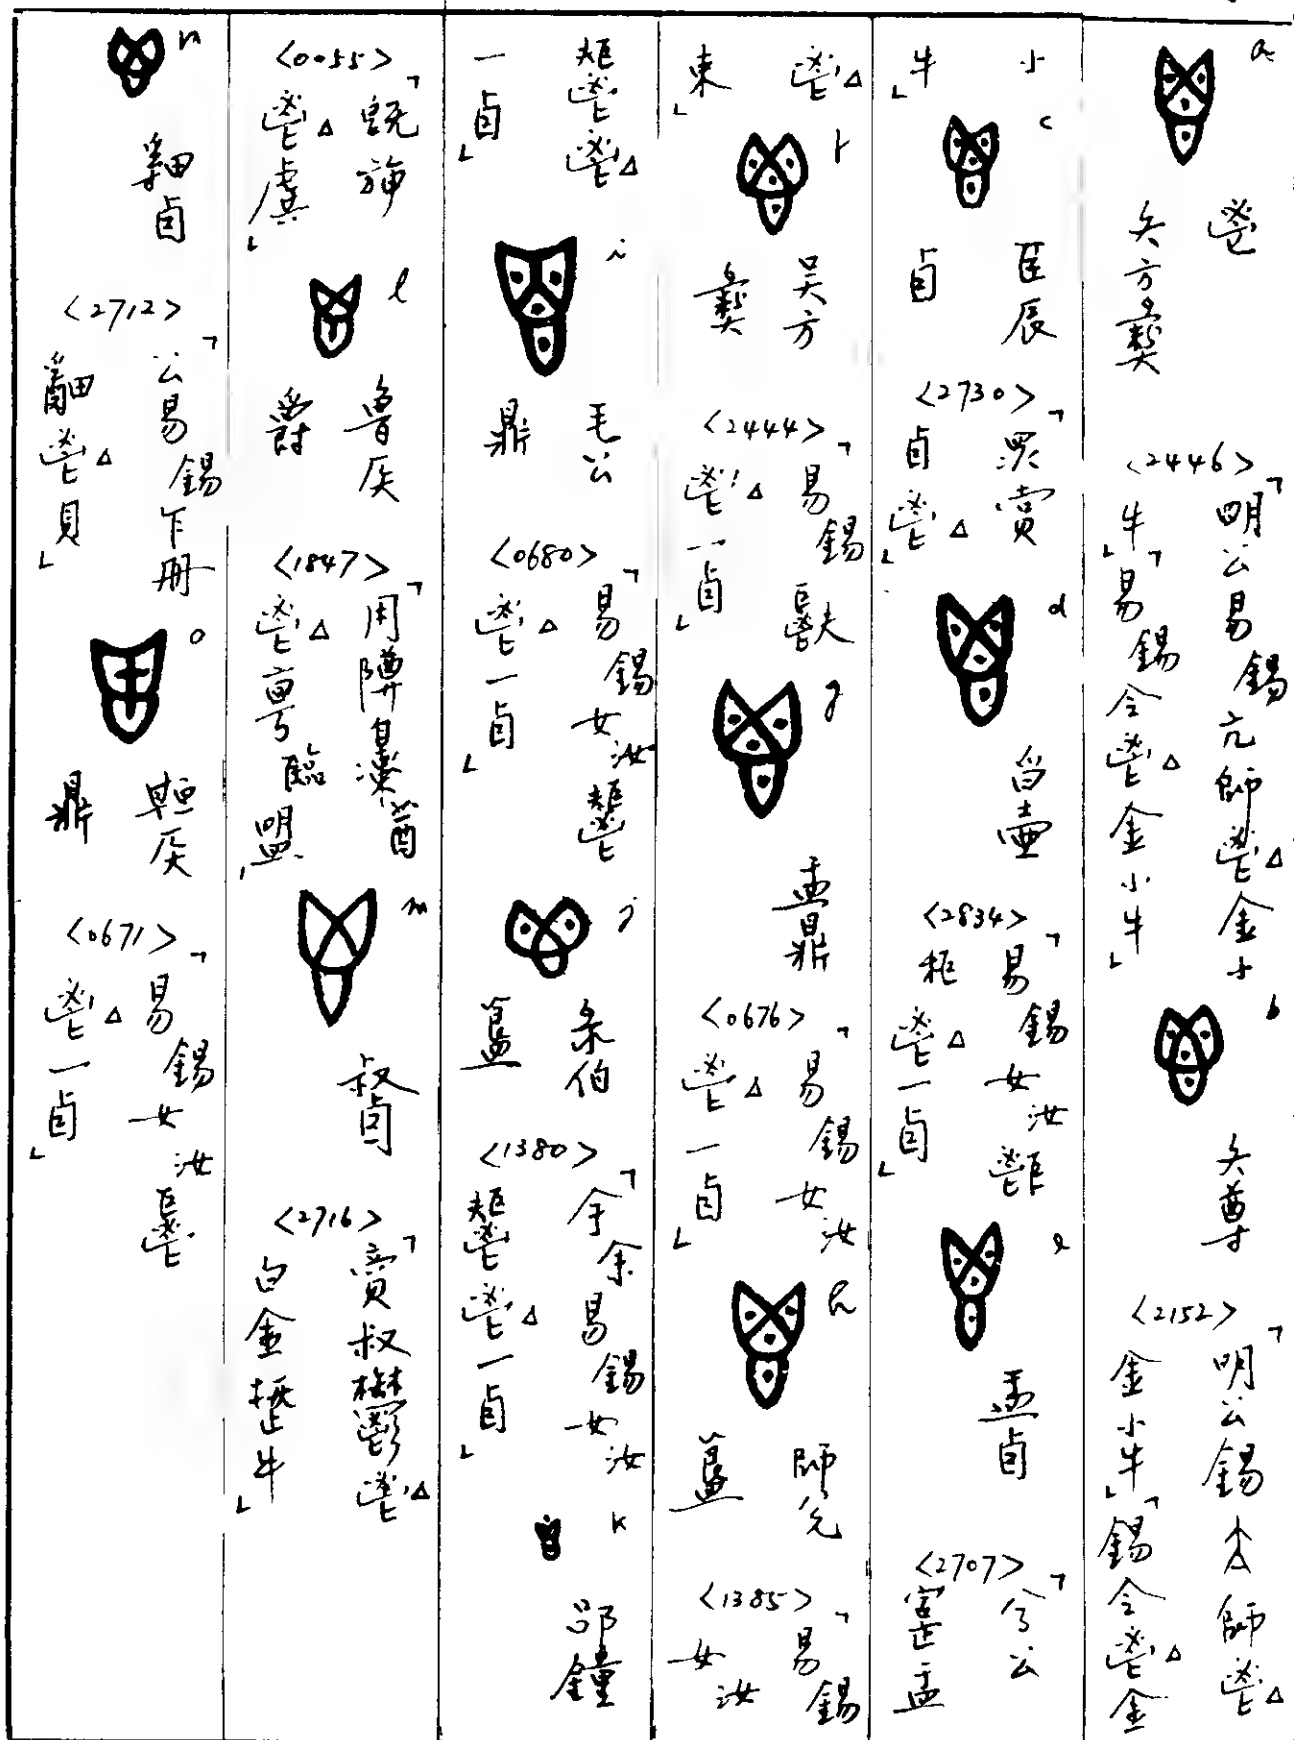 a
鬯
矢方彝
<2446>
「明公易錫亢師鬯△金小
牛」「易錫令鬯△金小牛」
b
矢尊
<2152>
「明公錫太師鬯△
金小牛」「錫令鬯△金
小
牛」
c
臣辰
卣
<2730>
「眔賞
卣鬯△」
d
白壺
<2834>
「易錫女汝
秬鬯△一卣」
e
盂卣
<2707>
「兮公
盂
鬯△
束」
f
吴方
彝
<2444>
「易錫
鬯△一卣」
g
盂鼎
<0676>
「易錫女汝
鬯△一卣」
h
師兌
簋
<1385>
「易錫
女汝
鬯△
一卣」
i
毛公
鼎
<0680>
「易錫女汝
鬯△一卣」
j
彔伯
簋
<1380>
「余易錫女汝
鬯△一卣」
k
郘鐘
<0055>
「既
鬯△虡」
l
魯侯
爵
<1847>
「用
鬯△臨盟」
m
叔卣
<2716>
「賞叔鬱鬯△
白金牛」
n
卣
<2712>
「公易錫乍冊
鬯△貝」
o
侯
鼎
<0671>
「易錫女汝
鬯△一卣」